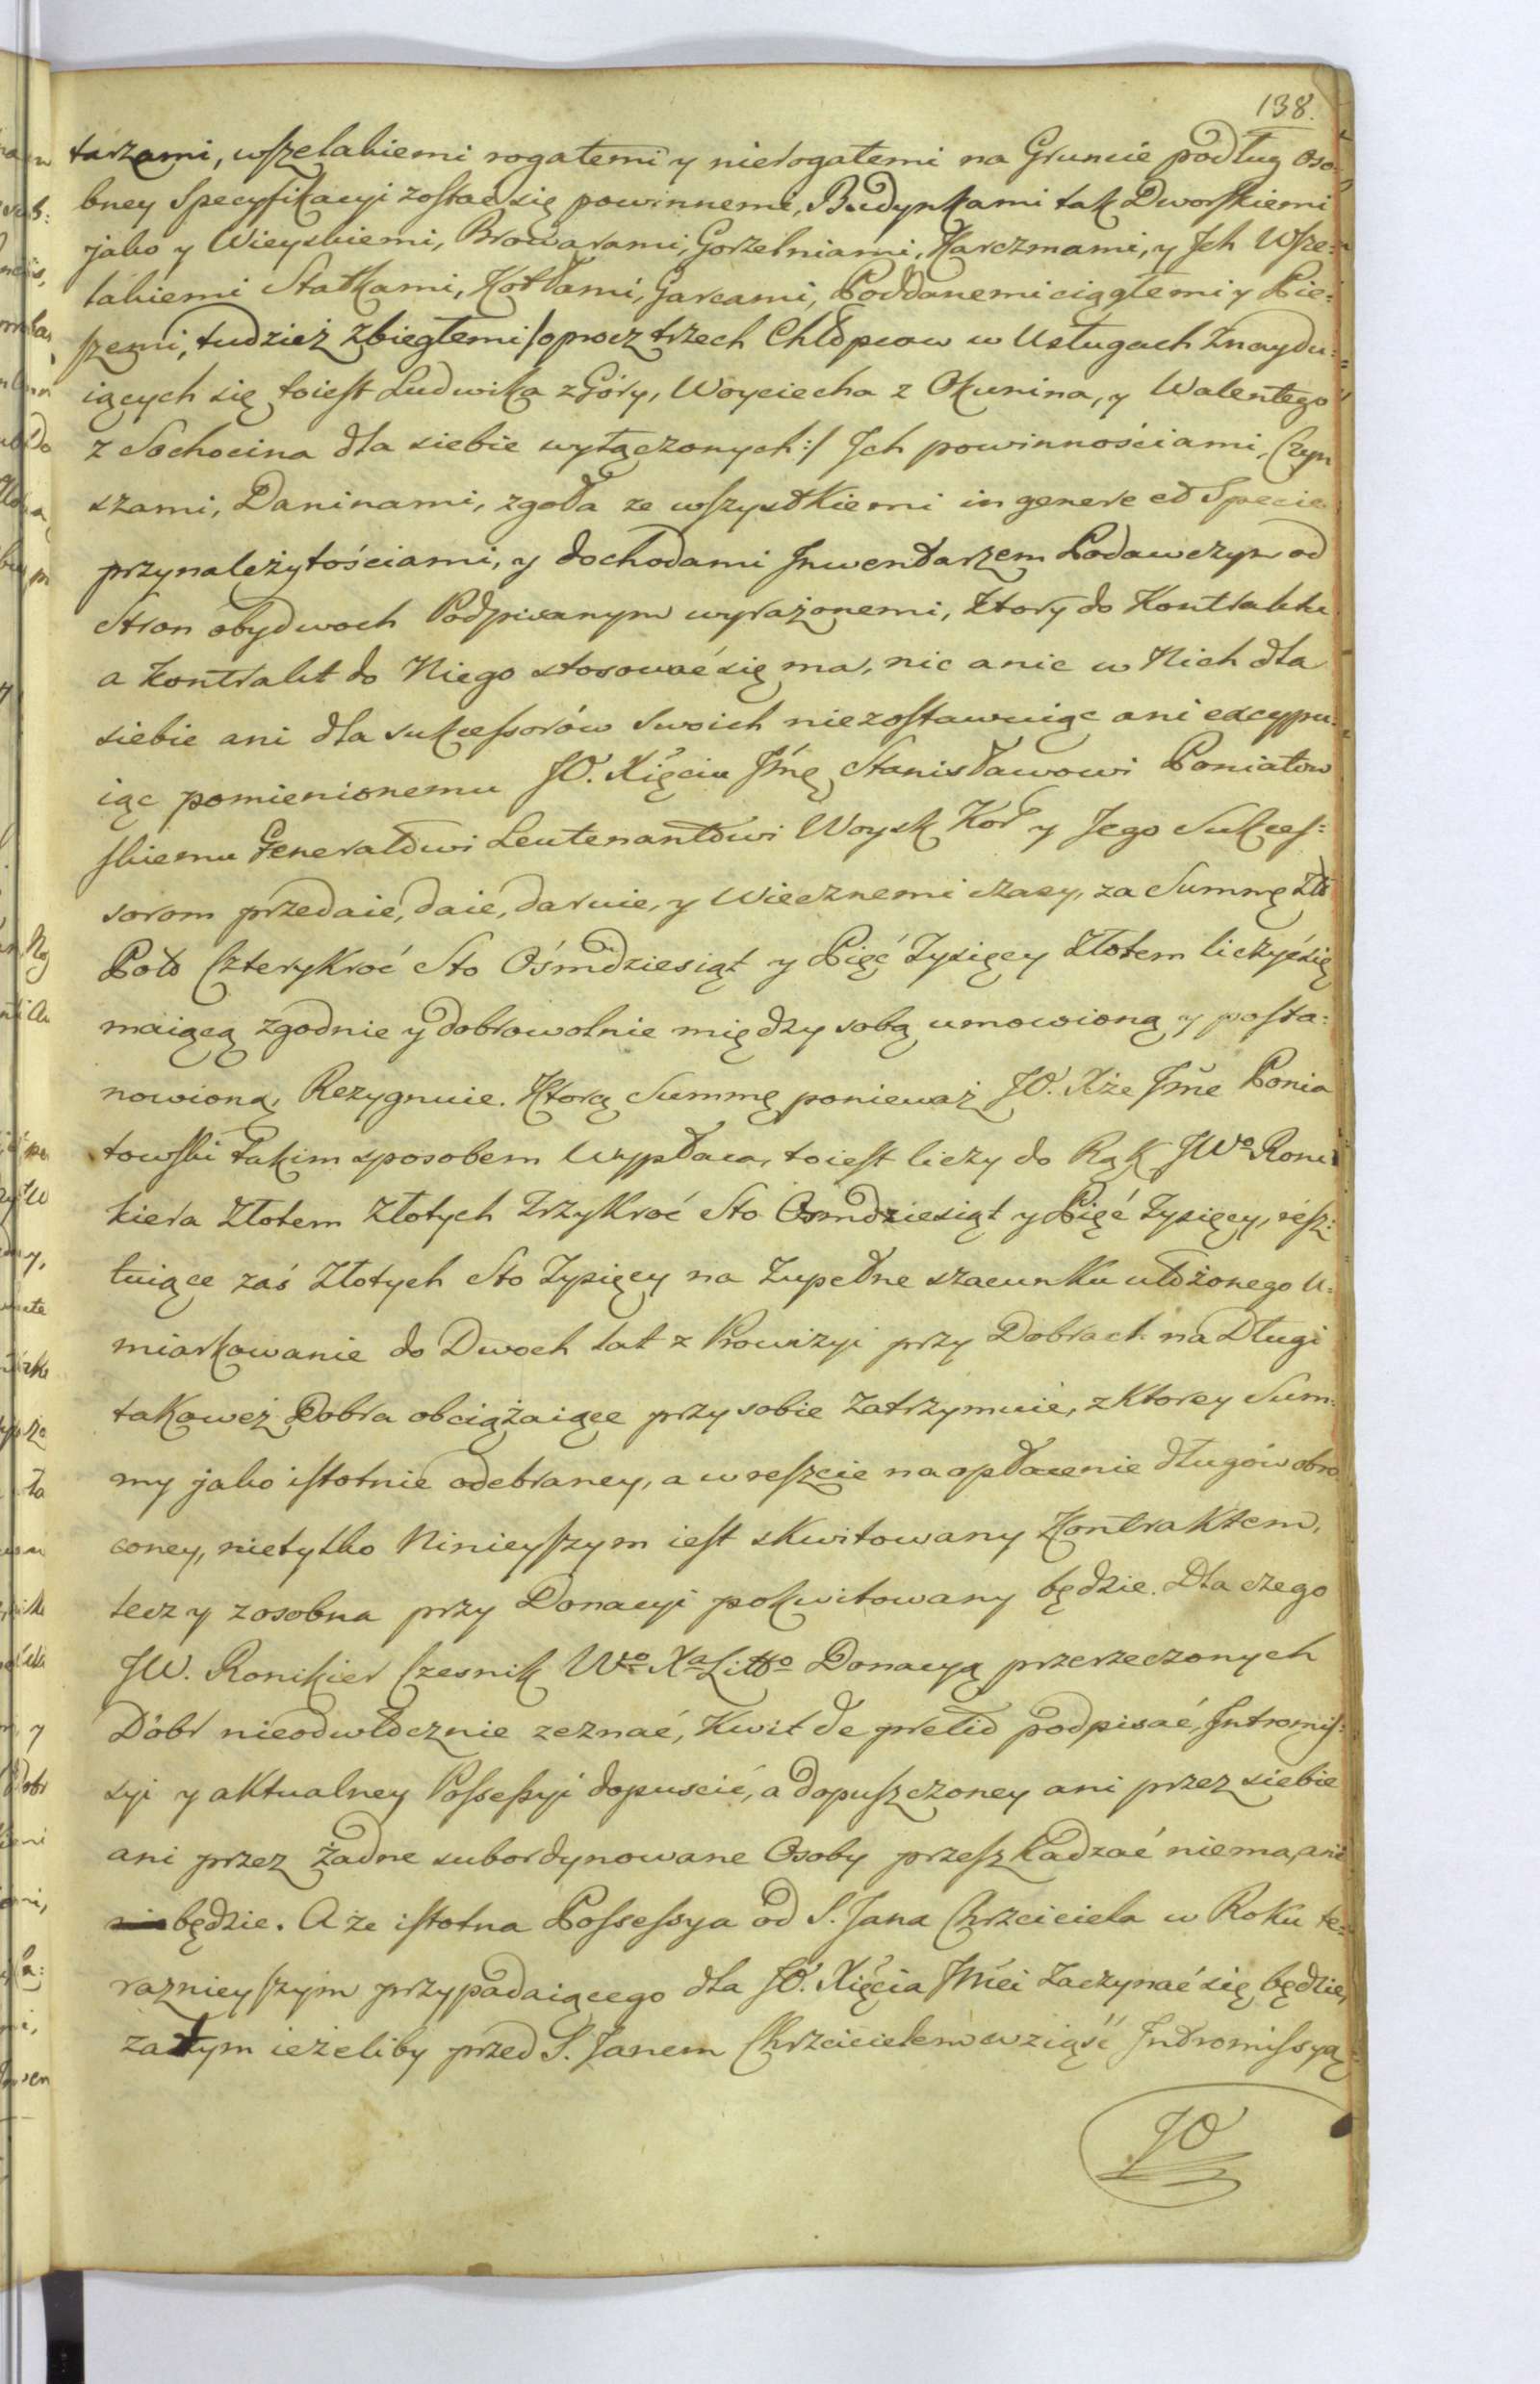 138.
tarzami, wszelakiemi rogatemi y nierogatemi na Gruncie podług oso-
bney Specyfikacyi zostać się powinnemi, Budynkami tak Dworskiemi
jako y Wieyskiemi, Browarami, Gorzelniami, Karczmami, y Jch Wsze-
lakiemi Statkami, Kotłami, Garcami, Poddanemi ciągłemi y Pie-
szemi, tudzież zbiegłemi /oprocz trzech Chłopcow w Usługach Znaydu-
iących się toiest Ludwika z Góry, Woyciecha z Okunina, y Walentego
z Sochocina dla siebie wyłączonych:/ Jch powinnościami, Czyn
szami, Daninami, zgoła ze wszystkiemi in genere et Specie
przynależytościami, y dochodami Jnwentarzem Podawczym od
Stron obydwoch Podpisanym wyrażonemi, ktory do Kontraktu
a Kontrakt do Niego stosować się ma, nic a nic w Nich dla
siebie ani dla sukcessorów Swoich niezostawuiąc ani excypu-
iąc pomienionemu JO. Xięciu Jmę Stanisławowi Poniatow
skiemu Generałowi Leutenantowi Woysk Kor y Jego Sukces:
sorom przedaie, daie, daruie, y Wiecznemi czasy, za Summę Złł
Pols Czterykroć Sto Ośmdziesiąt y Pięć Tysięcy Złotem liczyć się
maiącą zgodnie y dobrowolnie między sobą umowioną y posta:
nowioną, Rezygnuie. Ktorą Summę ponieważ JO. Xże Jme Ponia
towski takim sposobem Wypłaca, toiest liczy do Rąk JWo Roni
kiera Złotem Złotych Trzykroć Sto Osmdziesiąt y Pięć Tysięcy, resz:
tuiące zaś Złotych Sto Tysięcy na Zupełne szacunku ułożonego U-
miarkowanie do Dwoch lat z Prowizyi przy Dobrach na Długi
takoweż Dobra obciążaiące przy sobie Zatrzymuie, z Ktorey Sum-
my jako istotnie odebraney, a w reszcie na opłacenie długów obro
coney, nietylko Ninieyszym iest skwitowany Kontraktem,
lecz y zosobna przy Donacyi pokwitowany będzie. Dla czego
JW. Ronikier Czesnik Wgo Xa Littgo Donacyą przerzeczonych
Dóbr nieodwłocznie zeznać, Kwit de pretio podpisać, Jntromis:
syi y aktualney Possessyi dopuscić, a dopuszczoney ani przez siebie
ani przez żadne subordynowane Osoby przeszkadzać niema, ani
będzie. A że istotna Possessya od S. Jana Chrzciciela w Roku te-
raznieyszym przypadaiącego dla JO. Xięcia Jmci Zaczynać się będzie,
zatym ieżeliby przed S. Janem Chrzcicielem wziąść Jntromissyą
JO